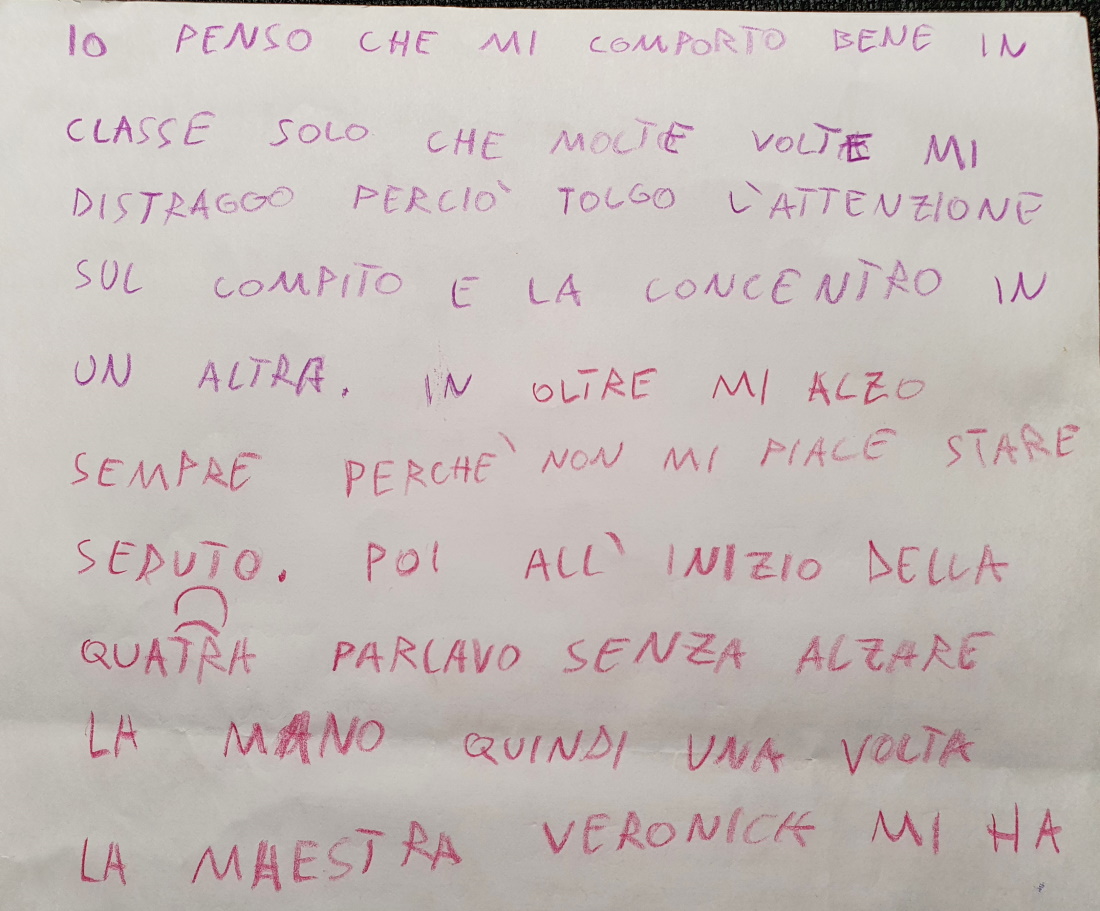 IO PENSO CHE MI COMPORTO BENE IN
CLASSE SOLO CHE MOLTE VOLTE MI
DISTRAGGO PERCIÒ TOLGO L'ATTENZIONE
SUL COMPITO E LA CONCENTRO IN
UN ALTRA. IN OLTRE MI ALZO
SEMPRE PERCHÈ NON MI PIACE STARE
SEDUTO. POI ALL' INIZIO DELLA
QUATRA PARLAVO SENZA ALZARE
LA MANO QUINDI UNA VOLTA
LA MAESTRA VERONICK MI HA